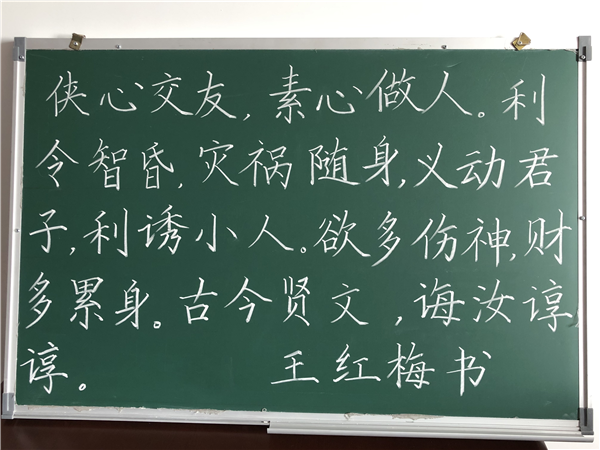 侠心交友，素心做人。利
令智昏，灾祸随身，义动君
子，利诱小人。欲多伤神，财
多累身。古今贤文，诲汝谆
谆。 王红梅书